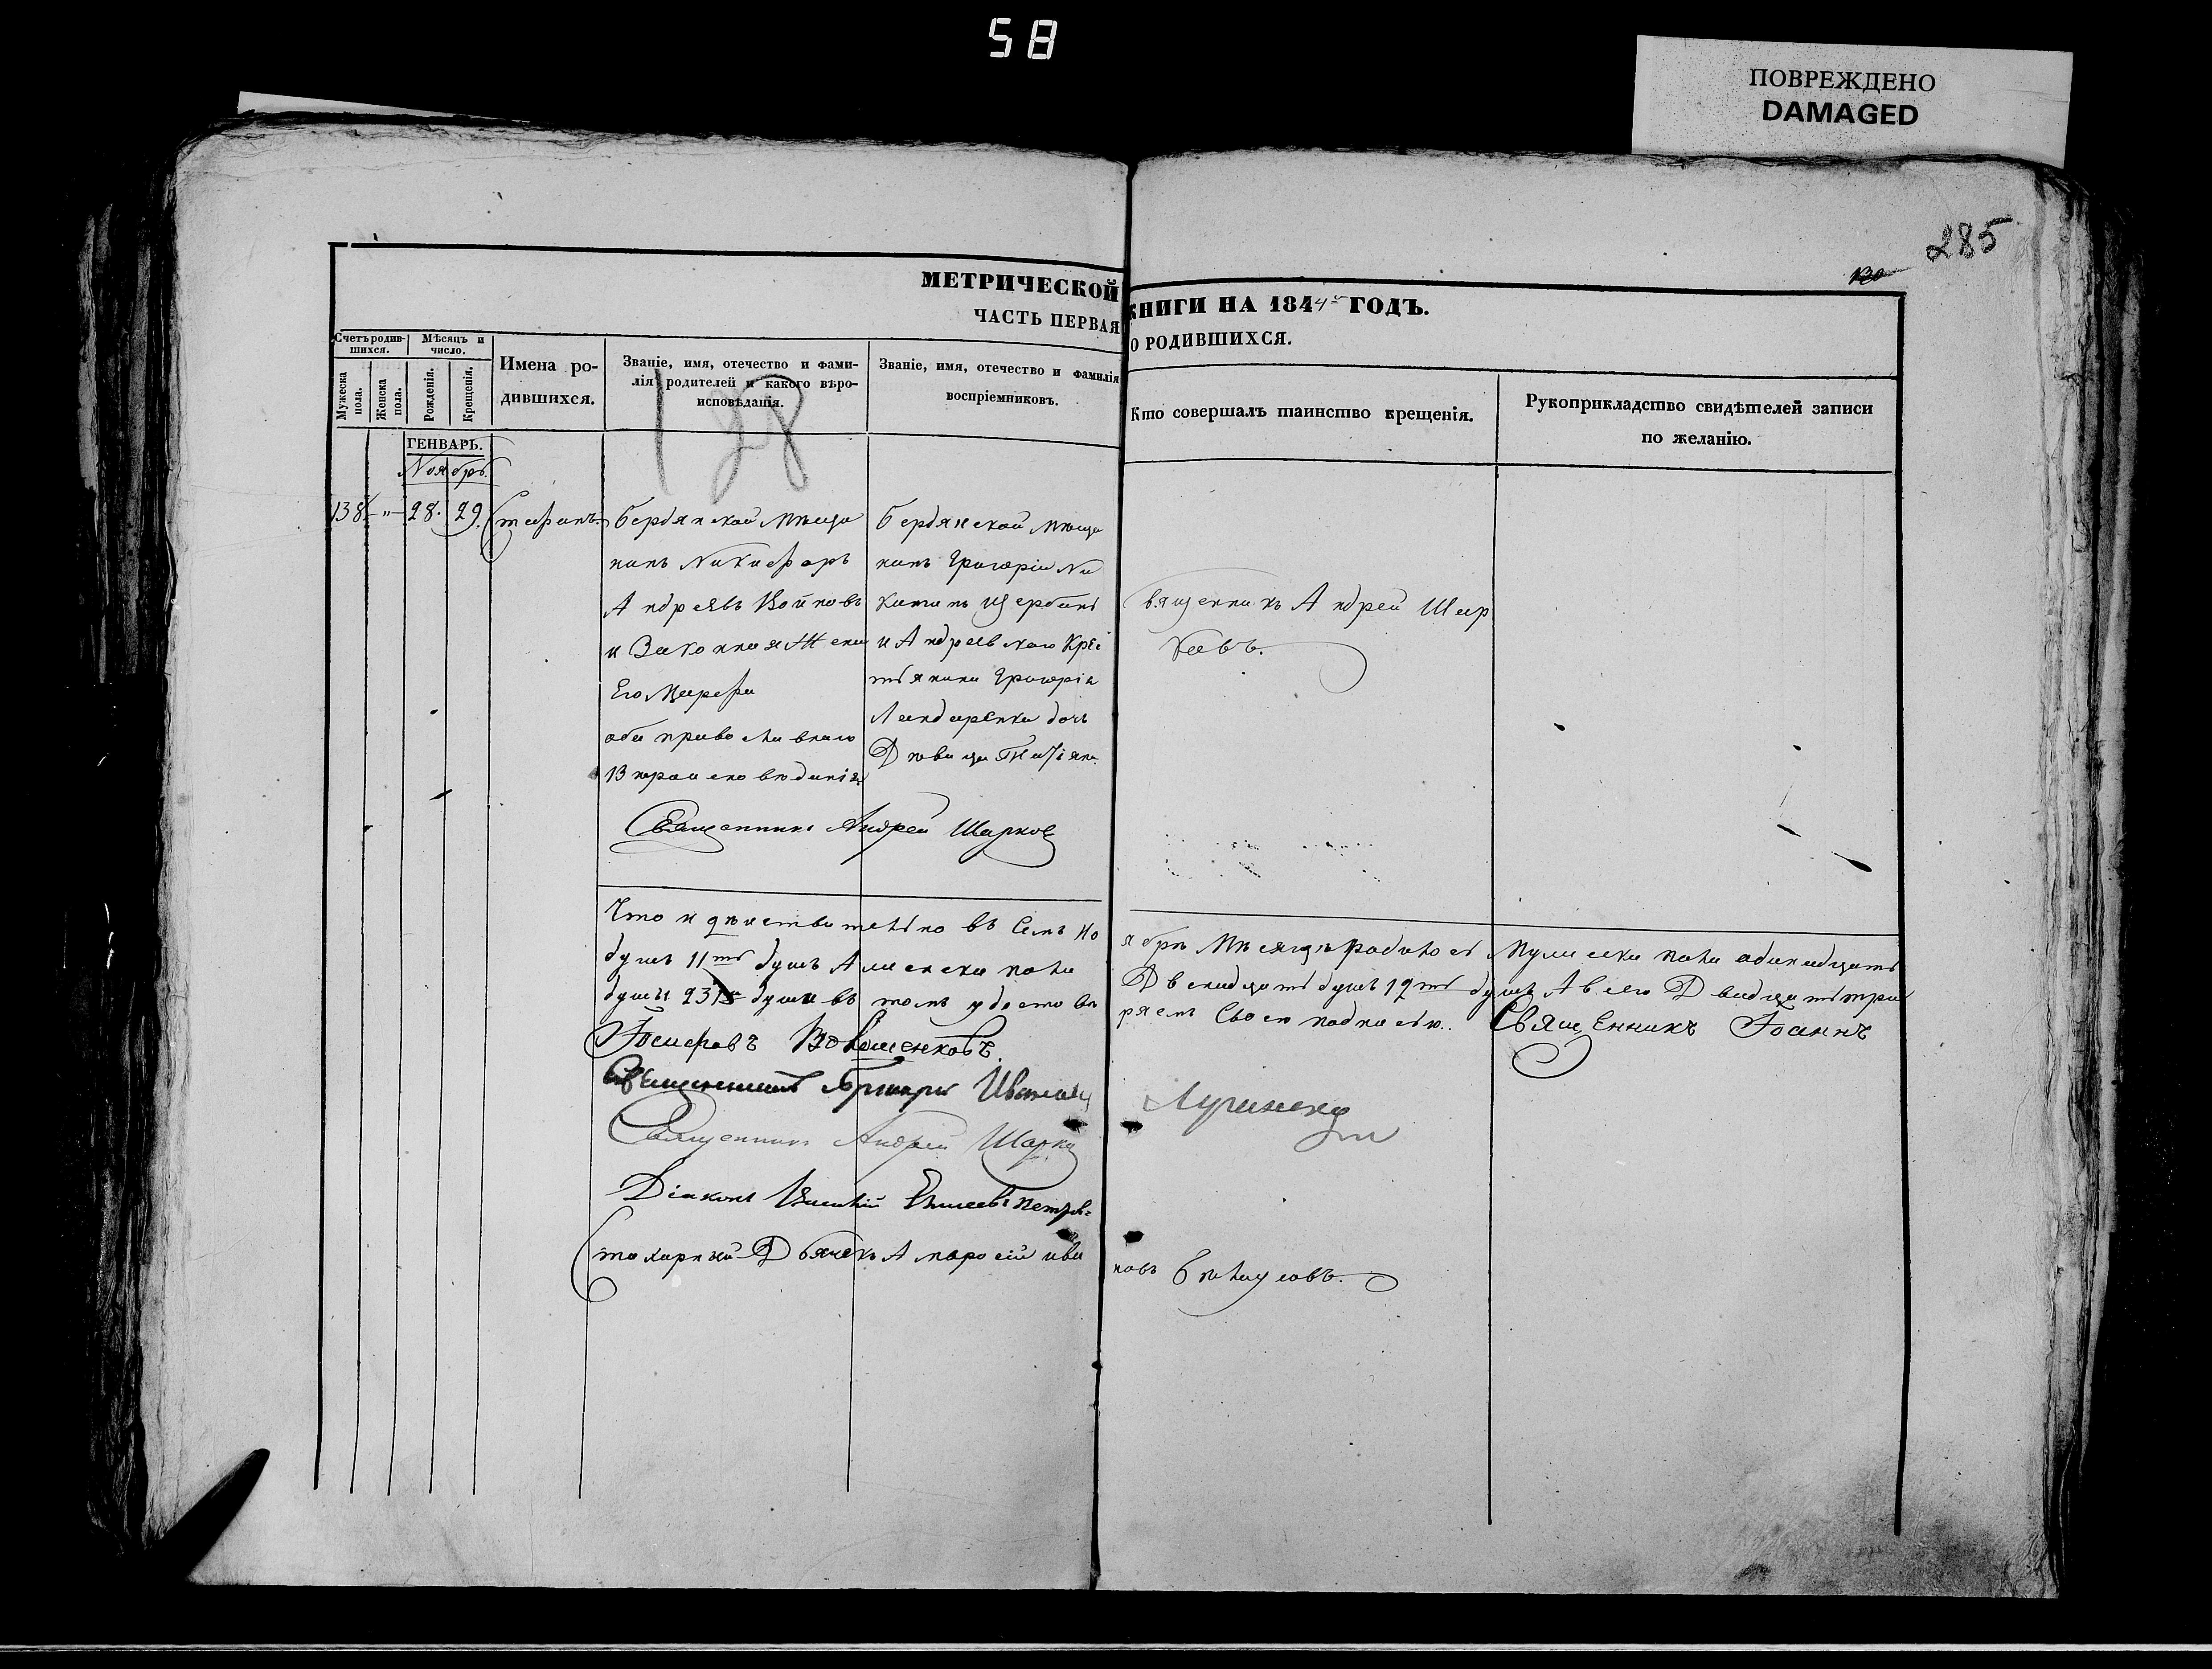 58
ПОВРЕЖДЕНО
DAMAGED
285
130
МЕТРИЧЕСКОЙ КНИГИ НА 1844й ГОДЪ.
ЧАСТЬ ПЕРВАЯ О РОДИВШИХСЯ.
Счетъ родив-
шихся.
Мѣсяцъ и
число.
Мужеска
пола.
Женска
пола.
Рожденія.
Крещенія.
Имена ро-
дившихся.
Званіе, имя, отечество и фами-
лія родителей и какого вѣро-
исповѣданія.
Званіе, имя, отечество и фамилія
воспріемниковъ.
Кто совершалъ таинство крещенія.
Рукоприкладство свидѣтелей записи
по желанію.
128
ГЕНВАРЬ.
Ноябрь.
138 " 28. 29. Стефанъ
Бердянской мѣща
нинъ Никифоръ
Андреевъ Войновъ
и Законная Жена
Его Марфа
оба православнаго
Вѣроисповѣданія
Бердянской мѣща
нинъ Григорій Ни
китинъ Щербина
и Андреевскаго Кре
стьянина Григорія
Ландаренка дочь
Дѣвица Татіяна
Священникъ Андрей Шар
ковъ.
Священникъ Андрей Шарковъ
Что и дѣйствительно въ Семъ Но ябрѣ Мѣсяцѣ родилось Мужеска пола одинадцать
душъ 11ть душъ А женска пола Двенадцать душъ 12ть душъ А всего Двадцать три
душы 23 душы въ томъ удостовѣ ряемъ Своею подписью. Священникъ Іоаннъ
Іосифовъ
Священникъ Григорій
Священникъ Андрей Шарковъ
Діаконъ Василій
Стохарный Дьячекъ Амвросій Ива новъ